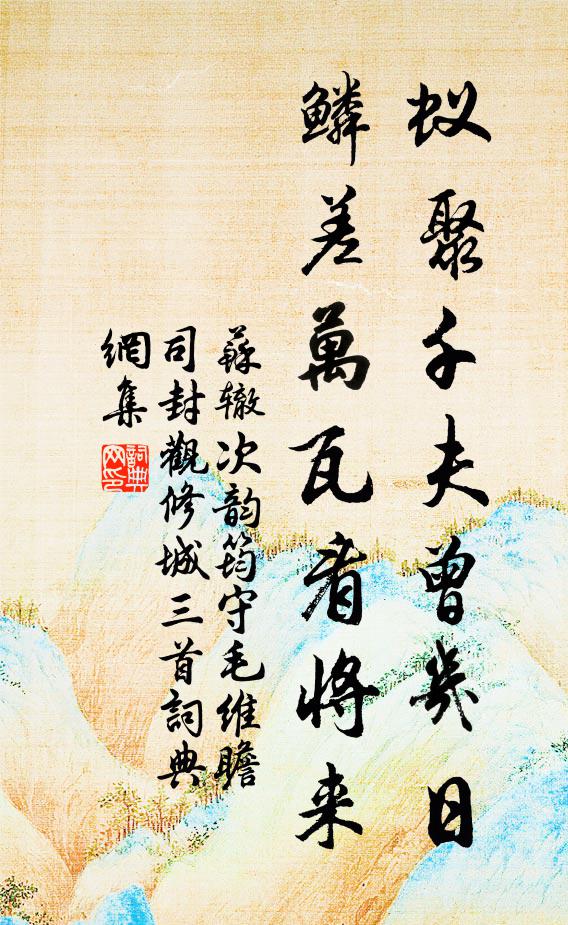 蚁聚千夫曾几日
鳞差萬瓦看将来
蘇辙次韵筠守毛维瞻
司封觀修城三首詞典
網集
詞典
网印